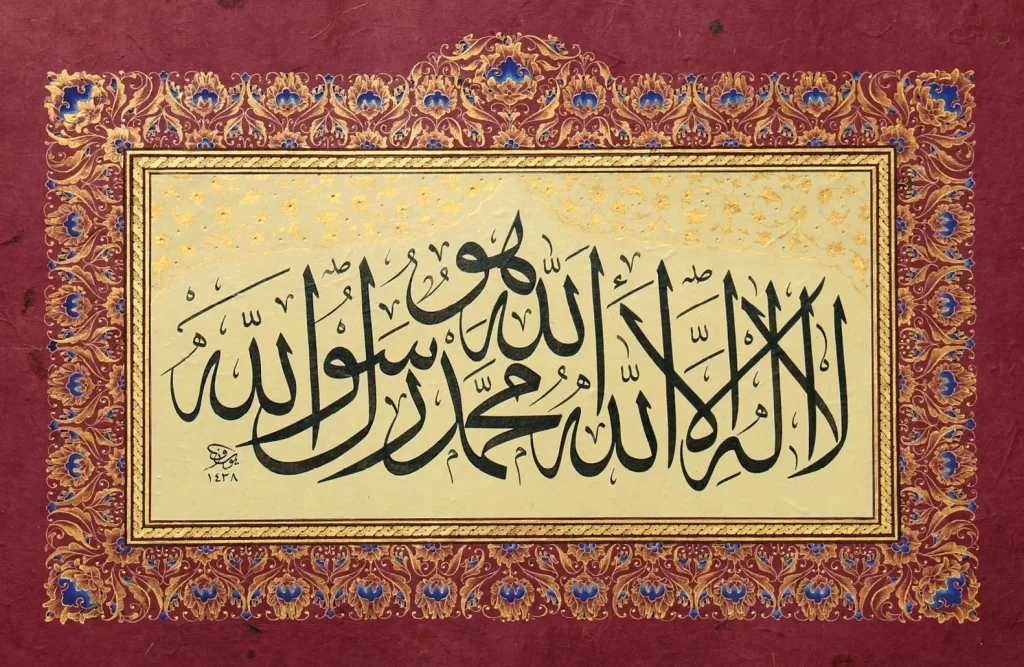 لا اله الا الله هو الله محمد رسول الله
١٤٣٨